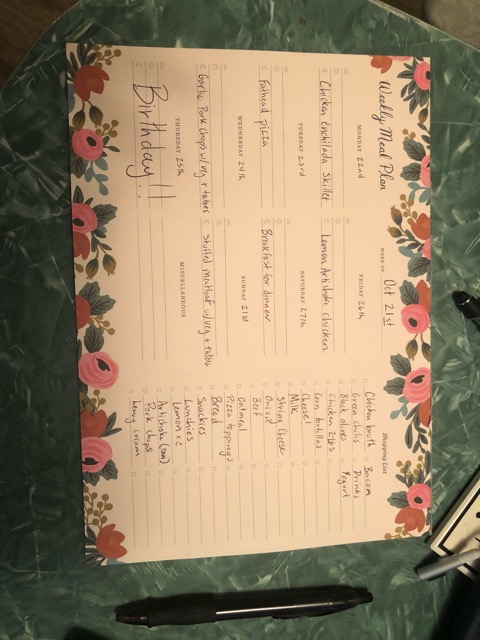 Weekly Meal Plan
WEEK OF Oct 21st
MONDAY 22nd
Chicken enchilada Skillet
TUESDAY 23rd
Fathead pizza
WEDNESDAY 24th
Garlic Pork Chops w/veg + tatoes
THURSDAY 25th
Birthday!!
FRIDAY 26th
Lemon Artichoke Chicken
SATURDAY 27th
Breakfast for dinner
SUNDAY 21st
Stuffed meatloaf w/veg + tatoes
MISCELLANEOUS
Shopping List
Chicken broth
Green chilis
Black olives
Chicken
Corn tortillas
Cheese
Milk
String Cheese
Onions
Beef
Oatmeal
Pizza toppings
Bread
Snackies
Lunchies
Lemon x 2
Artichoke (can)
Pork Chops
heavy cream
Bacon
Drinks
Yogurt